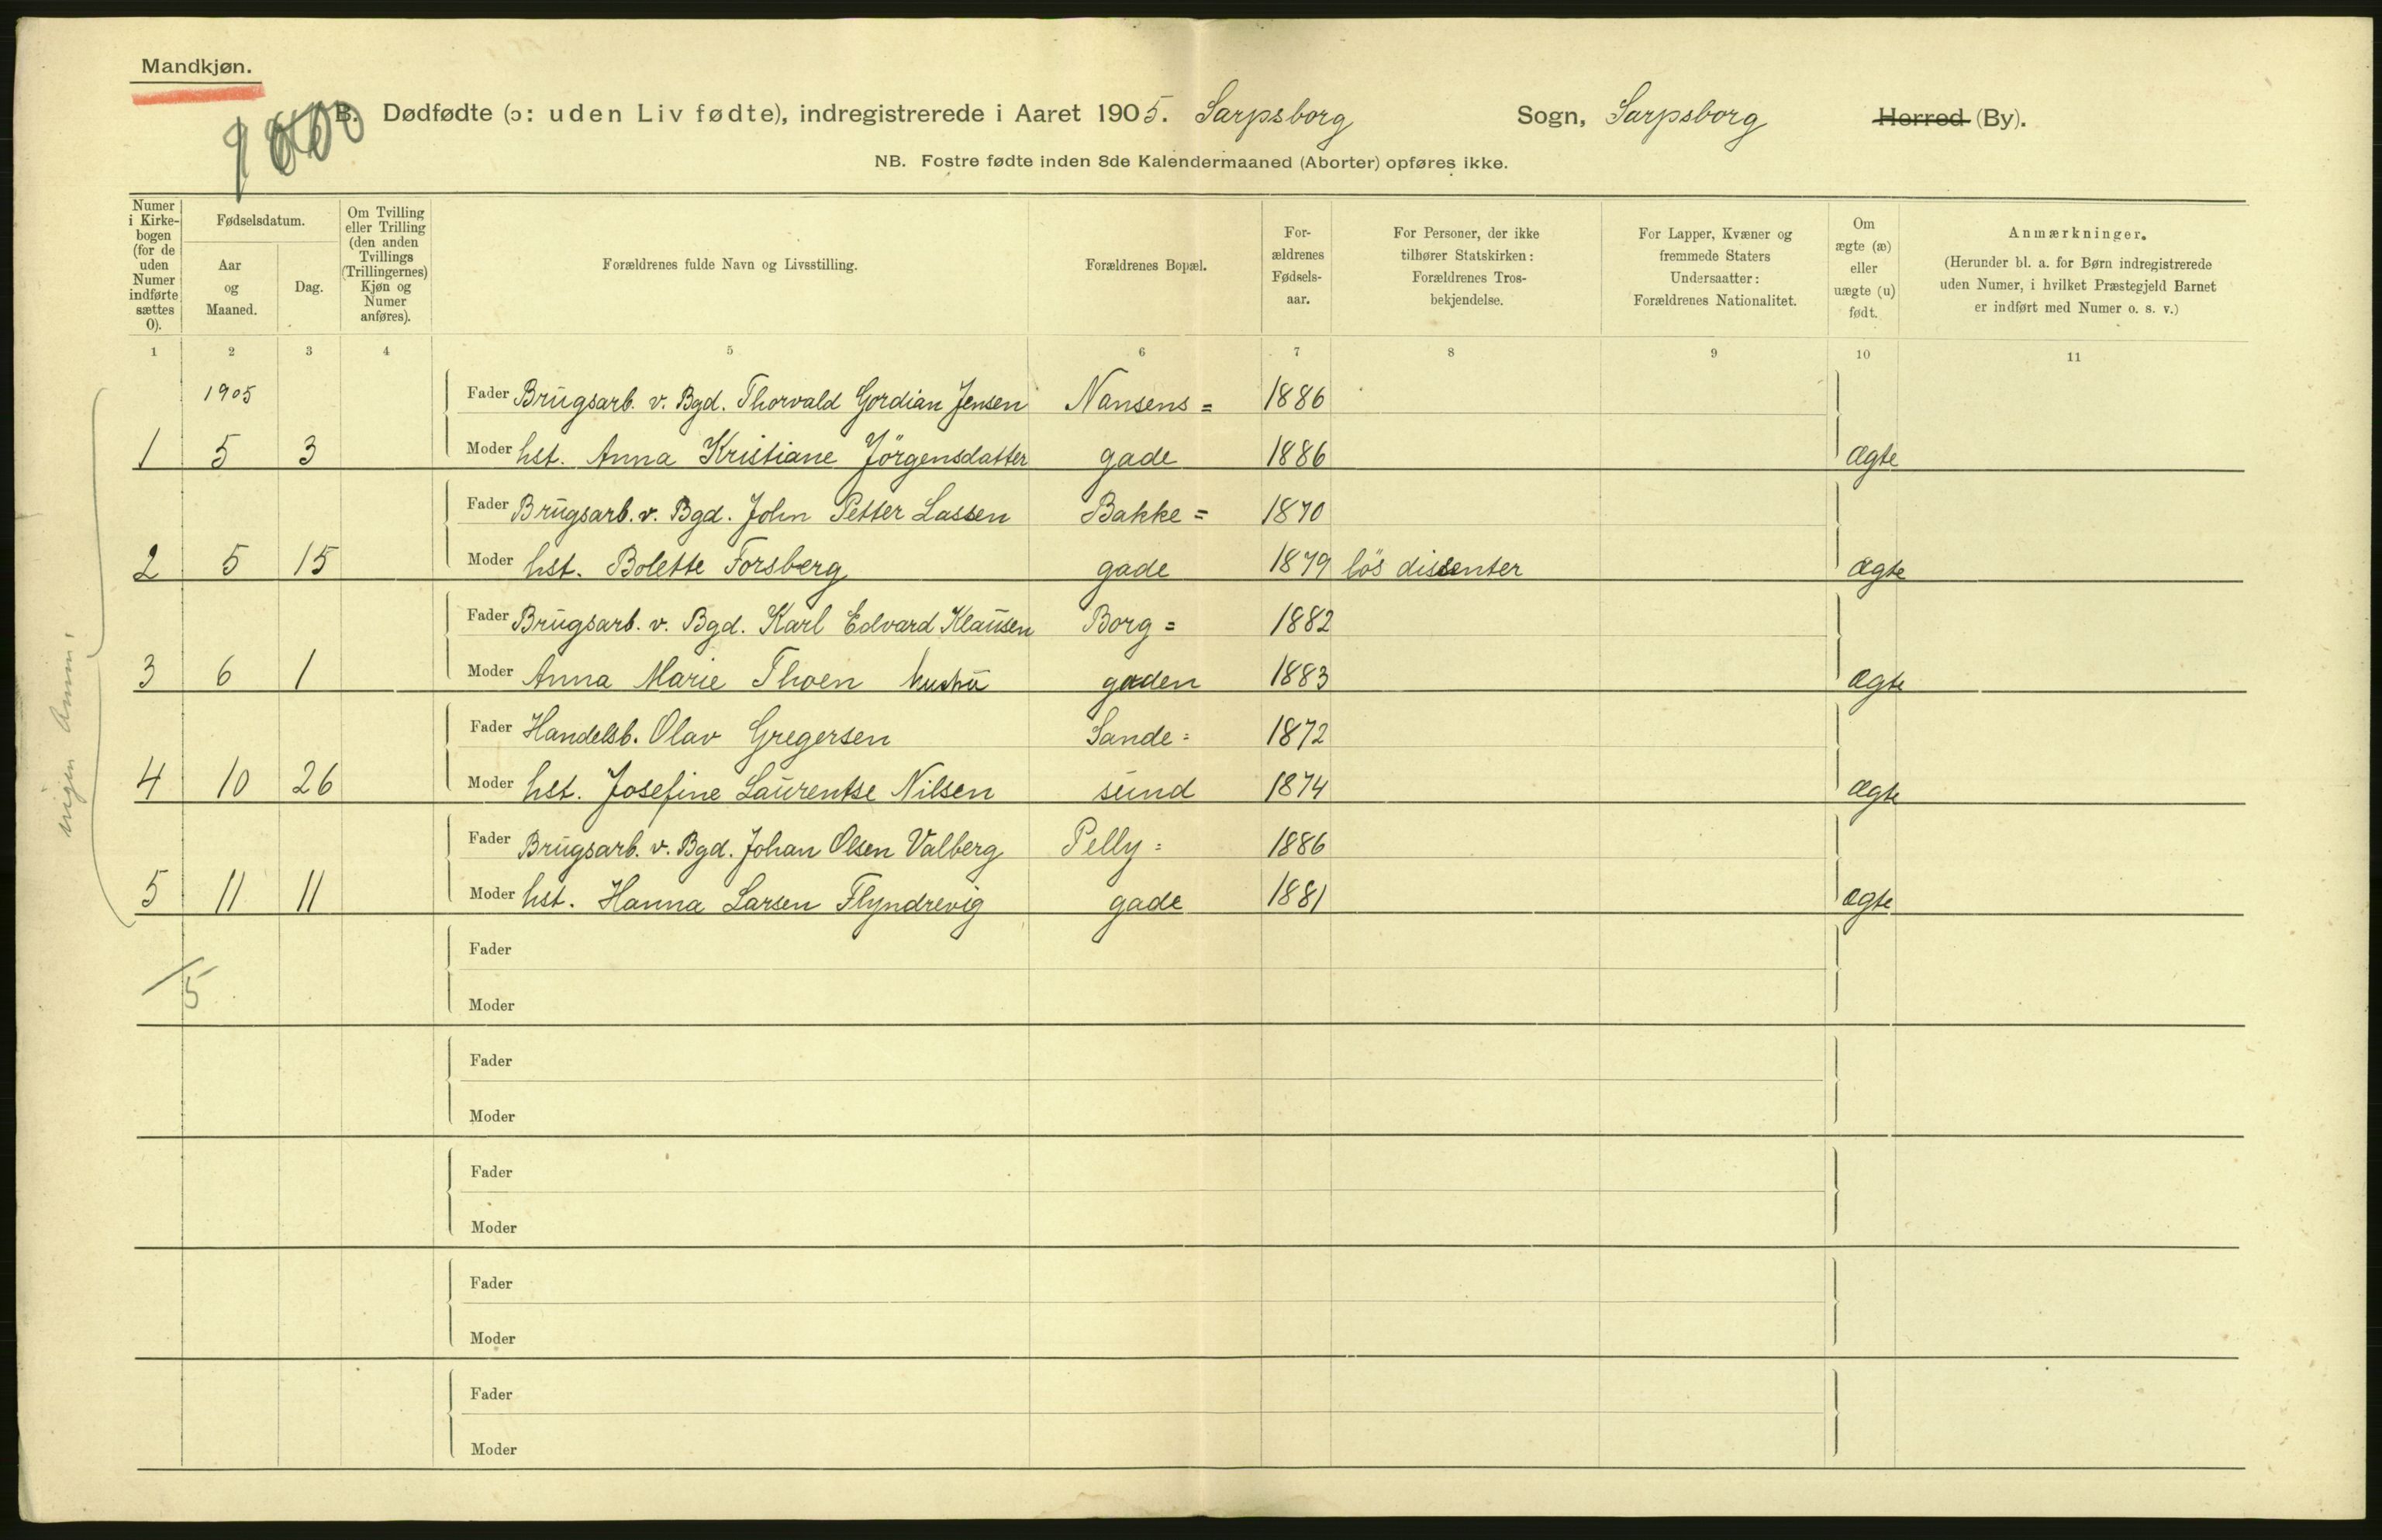 Mandkjøn.
B. Dødfødte (ɔ: uden Liv fødte), indregistrerede i Aaret 1905. Sarpsborg Sogn, Sarpsborg Herred (By).
NB. Fostre fødte inden 8de Kalendermaaned (Aborter) opføres ikke.
Numer i Kirkebogen (for de uden Numer indførte sættes 0).
Fødselsdatum.
Aar og Maaned.
Dag.
Om Tvilling eller Trilling (den anden Tvillings (Trillingernes) Kjøn og Numer anføres).
Forældrenes fulde Navn og Livsstilling.
Forældrenes Bopæl.
Forældrenes Fødselsaar.
For Personer, der ikke tilhører Statskirken: Forældrenes Trosbekjendelse.
For Lapper, Kvæner og fremmede Staters Undersaatter: Forældrenes Nationalitet.
Om ægte (æ) eller uægte (u) født.
Anmærkninger.
(Herunder bl. a. for Børn indregistrerede uden Numer, i hvilket Præstegjeld Barnet er indført med Numer o. s. v.)
1 2 3 4 5 6 7 8 9 10 11
1905 Fader Brugsarb. v. Bgd. Thorvald Gordian Jensen Nansens= 1886
1 5 3 Moder hst. Anna Kristiane Jörgensdatter gade 1886 ægte
Fader Brugsarb. v. Bgd. John Petter Lassen Bakke= 1870
2 5 15 Moder hst. Bolette Forsberg gade 1879 lös dissenter ægte
Fader Brugsarb. v. Bgd. Karl Edvard Klausen Borg= 1882
3 6 1 Moder Anna Marie Thoen hustru gaden 1883 ægte
Fader Handelsb. Olav Gregersen Sande= 1872
4 10 26 Moder hst. Josefine Laurentse Nilsen sund 1874 ægte
Fader Brugsarb. v. Bgd. Johan Olsen Valberg Pelly= 1886
5 11 11 Moder hst. Hanna Larsen Flyndrevig gade 1881 ægte
ingen Anm.
Fader
5
Moder
Fader
Moder
Fader
Moder
Fader
Moder
Fader
Moder